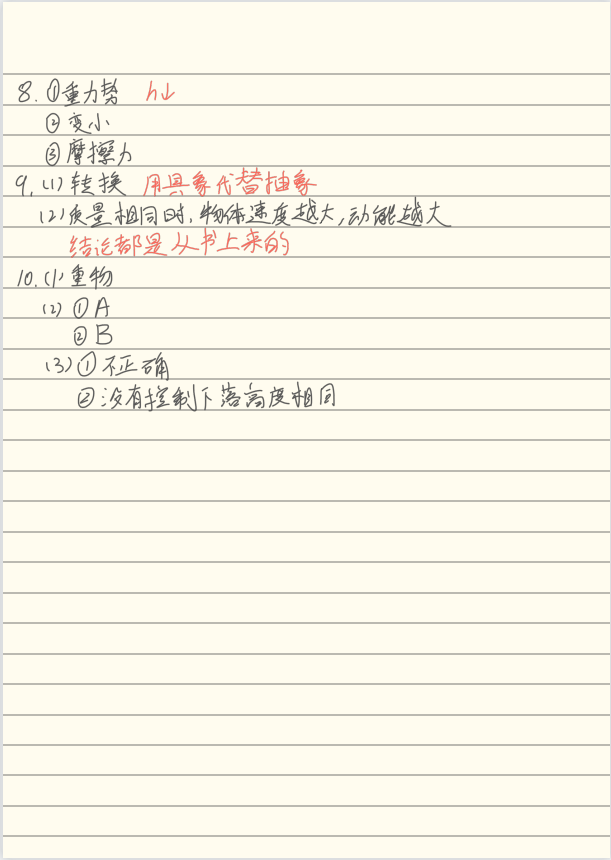 8. ①重力势 h↓
②变小
③摩擦力
9. (1) 转换 用具象代替抽象
(2) 质量相同时,物体速度越大,动能越大
结论都是从书上来的
10. (1) 重物
(2) ①A
②B
(3) ①不正确
②没有控制下落高度相同